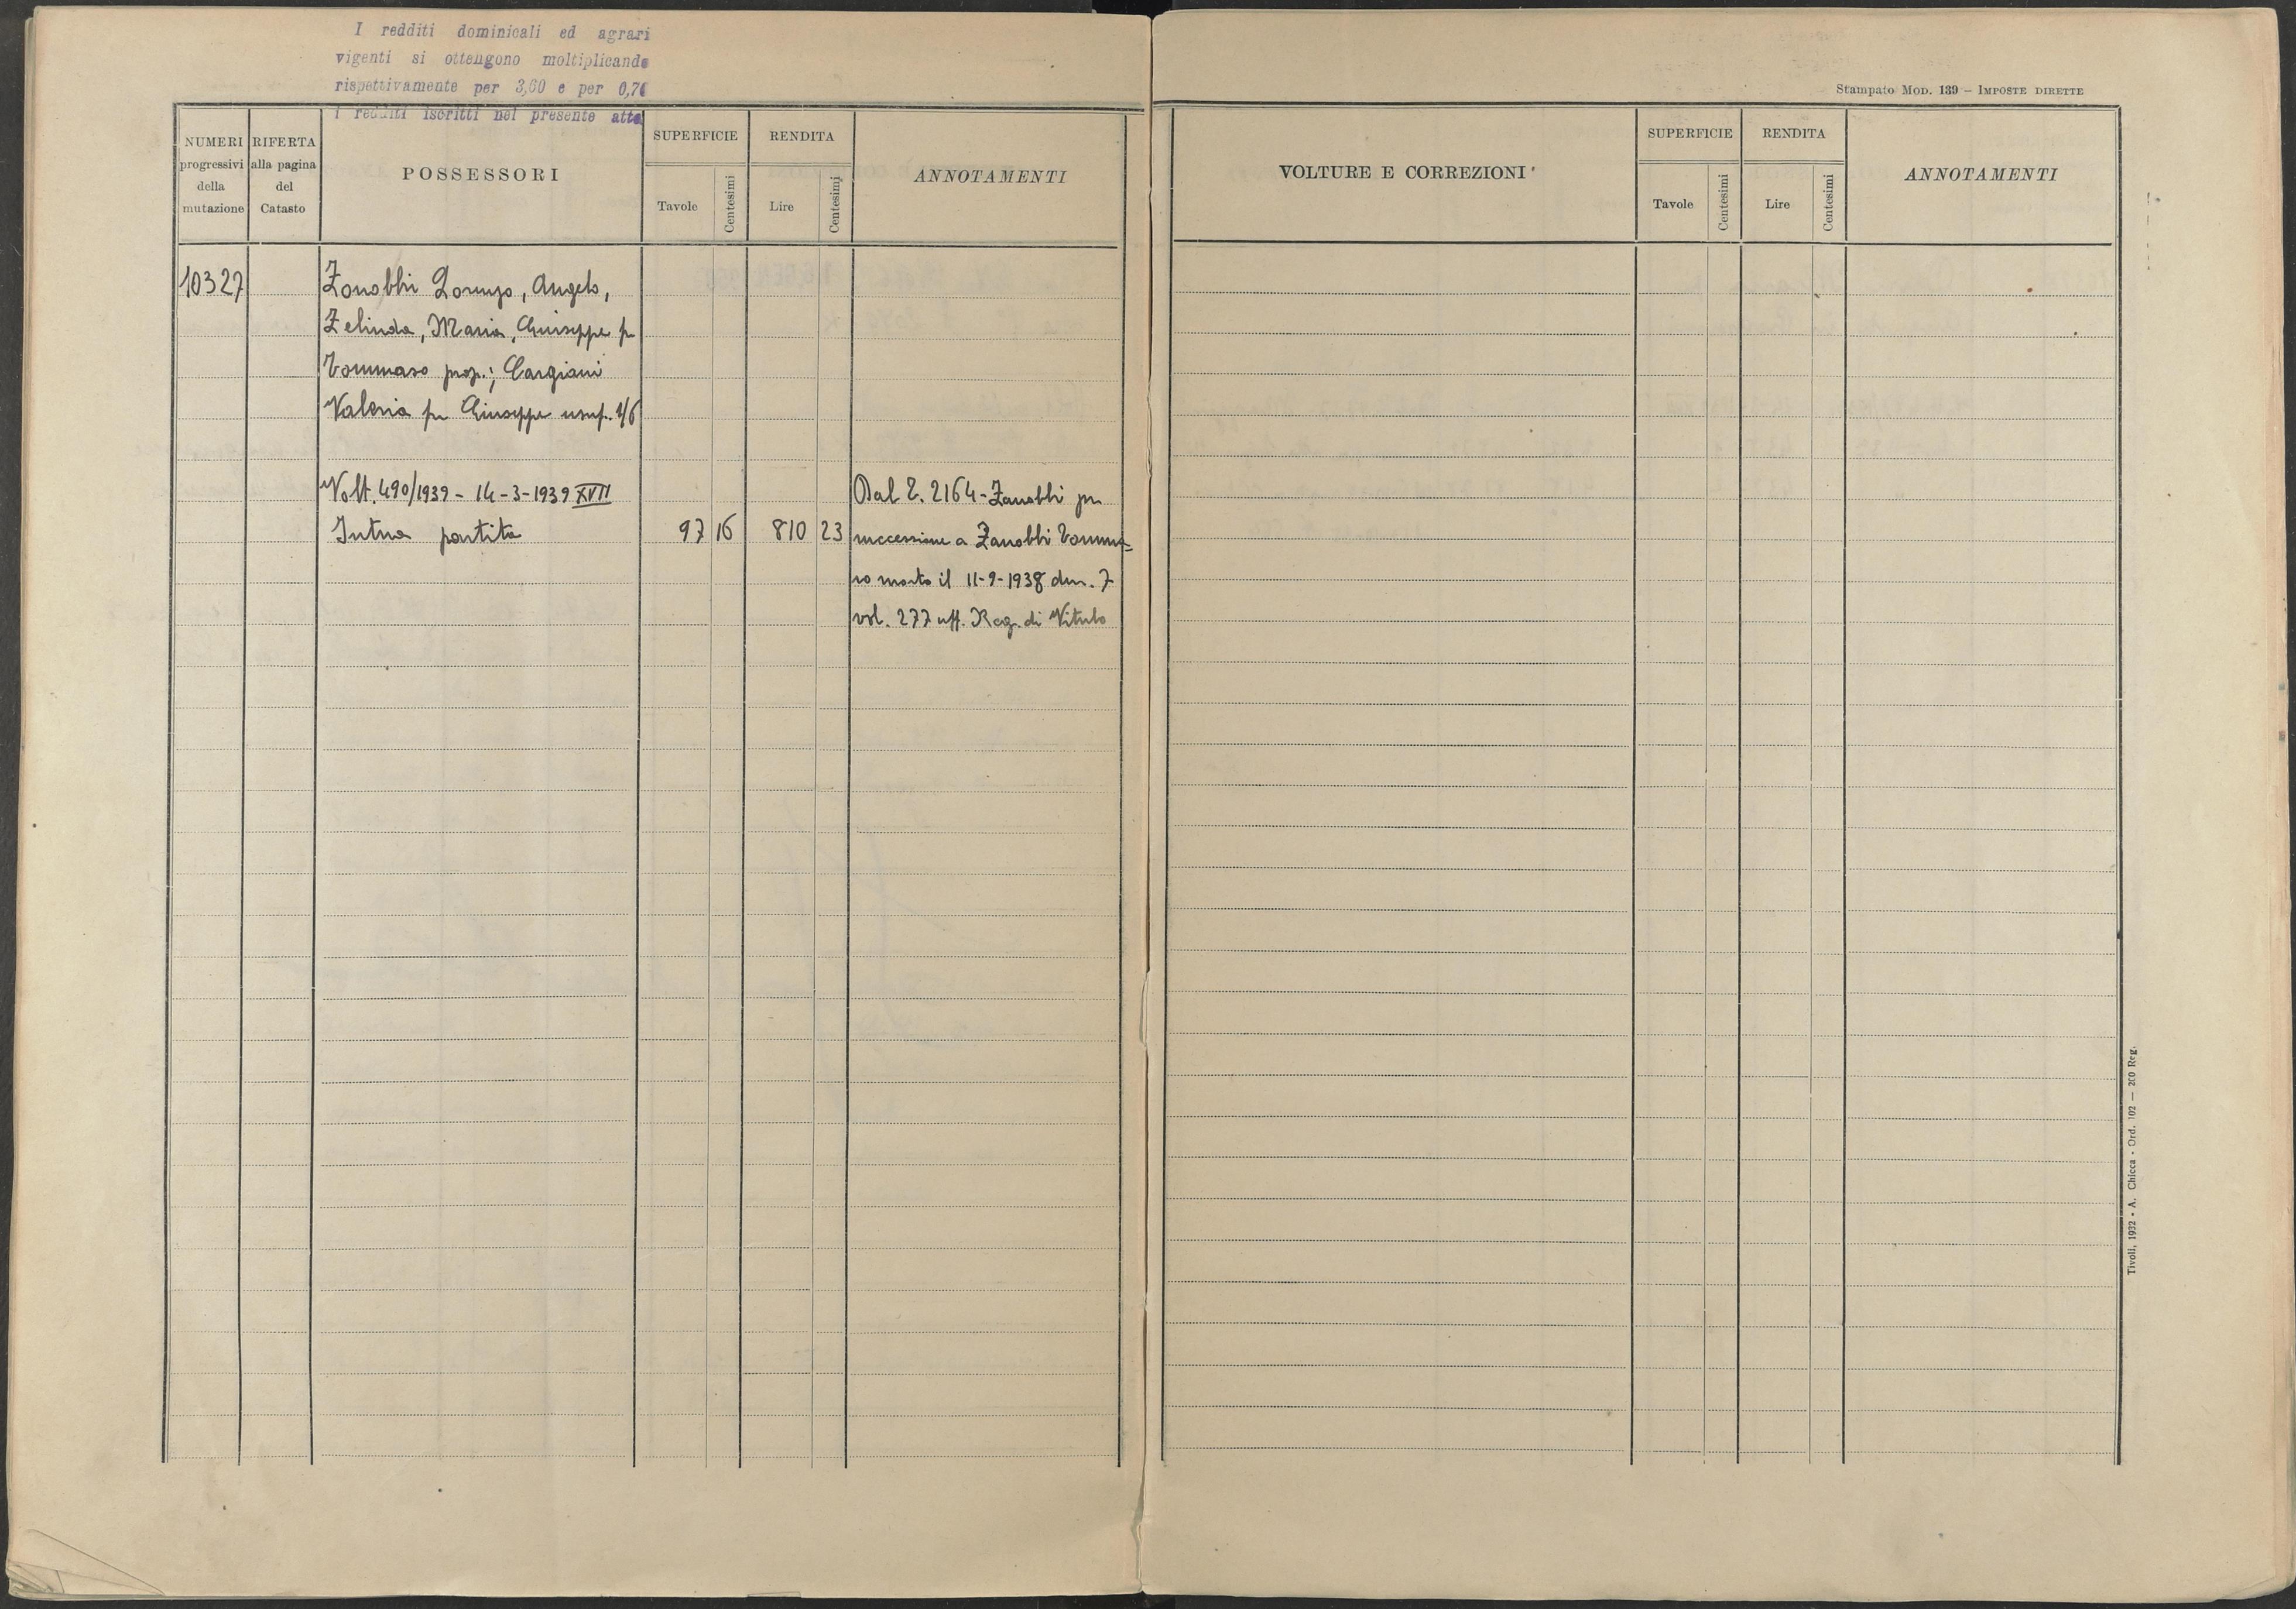 I redditi dominicali ed agrari
vigenti si ottengono moltiplicando
rispettivamente per 3,60 e per 0,70
i redditi iscritti nel presente atto
NUMERI
progressivi
della
mutazione
RIFERTA
alla pagina
del
Catasto
POSSESSORI
SUPERFICIE
Tavole
Centesimi
RENDITA
Lire
Centesimi
ANNOTAMENTI
10327
Zanobbi Lorenzo, Angelo,
Zelinda, Maria, Giuseppe fu
Tommaso prop.; Cargiani
Valeria fu Giuseppe usuf. 1/6
Volt. 490/1939 - 14-3-1939 XVII
Intera partita 97 16 810 23
Dal T. 2164 - Zanobbi per
successione a Zanobbi Tomma=
so morto il 11-9-1938 den. 7
vol. 277 uff. Reg. di
Stampato MOD. 139 – IMPOSTE DIRETTE
VOLTURE E CORREZIONI
SUPERFICIE
Tavole
Centesimi
RENDITA
Lire
Centesimi
ANNOTAMENTI
Tivoli, 1932 - A. Chicca - Ord. 102 — 200 Reg.